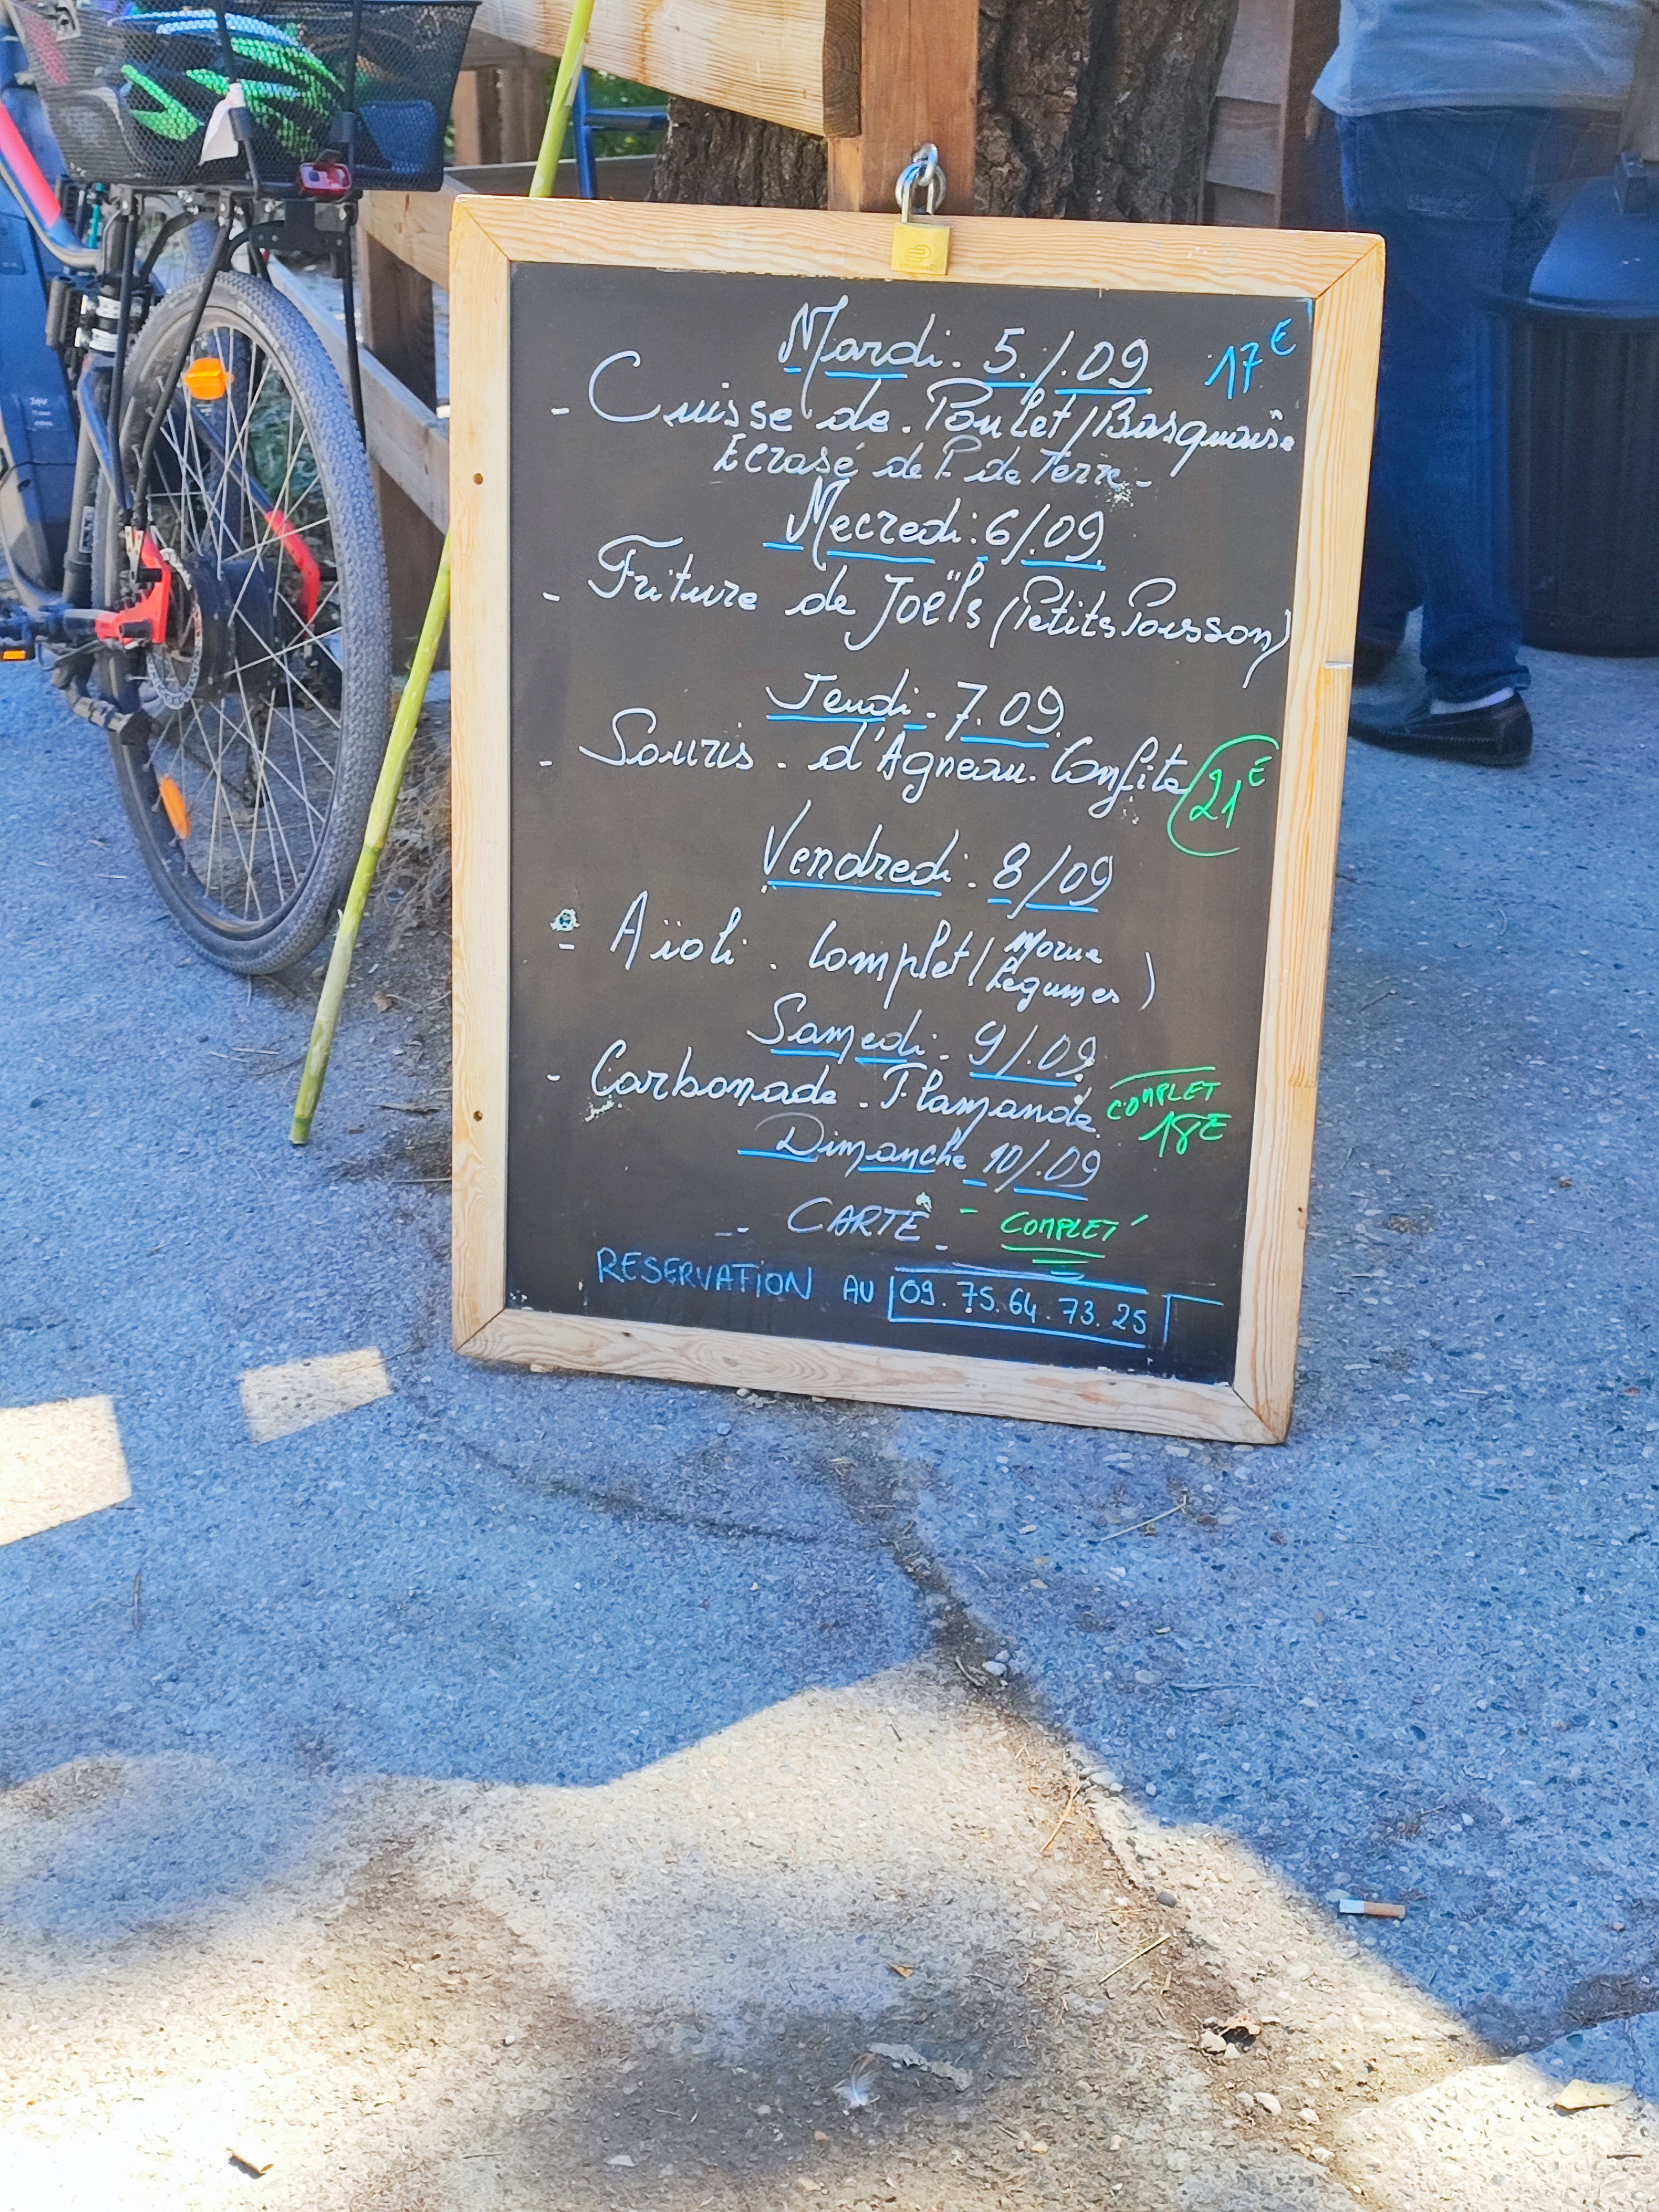 Mardi. 5./.09 17€
- Cuisse de. Poulet/Basquaise
Ecrasé de P. de Terre-
Mecredi: 6/.09
- Friture de Joëls (Petits Poisson)
Jeudi. 7.09
- Souris. d'Agneau. Confite 21€
Vendredi. 8/09
- Aïoli. Complet (Morue
Legumes)
Samedi. 9/.09
- Carbonade. Flamande COMPLET
18€
Dimanche 10/.09
- CARTE - COMPLET
RESERVATION AU 09.75.64.73.25